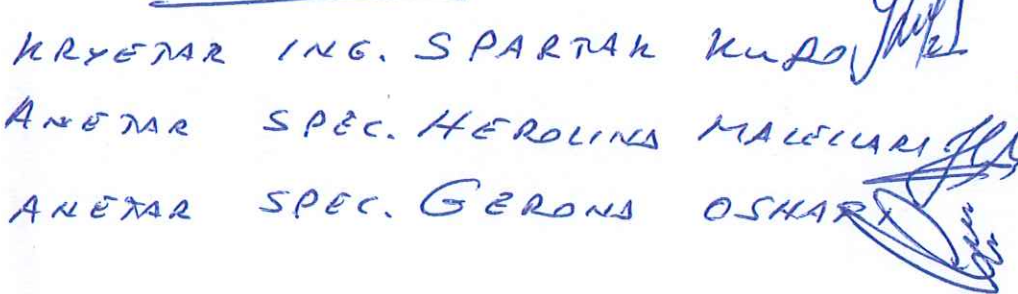 KRYETAR ING. SPARTAK KURO
ANETAR SPEC. HEROLINA MACELLARI
ANETAR SPEC. GERONA OSHARI